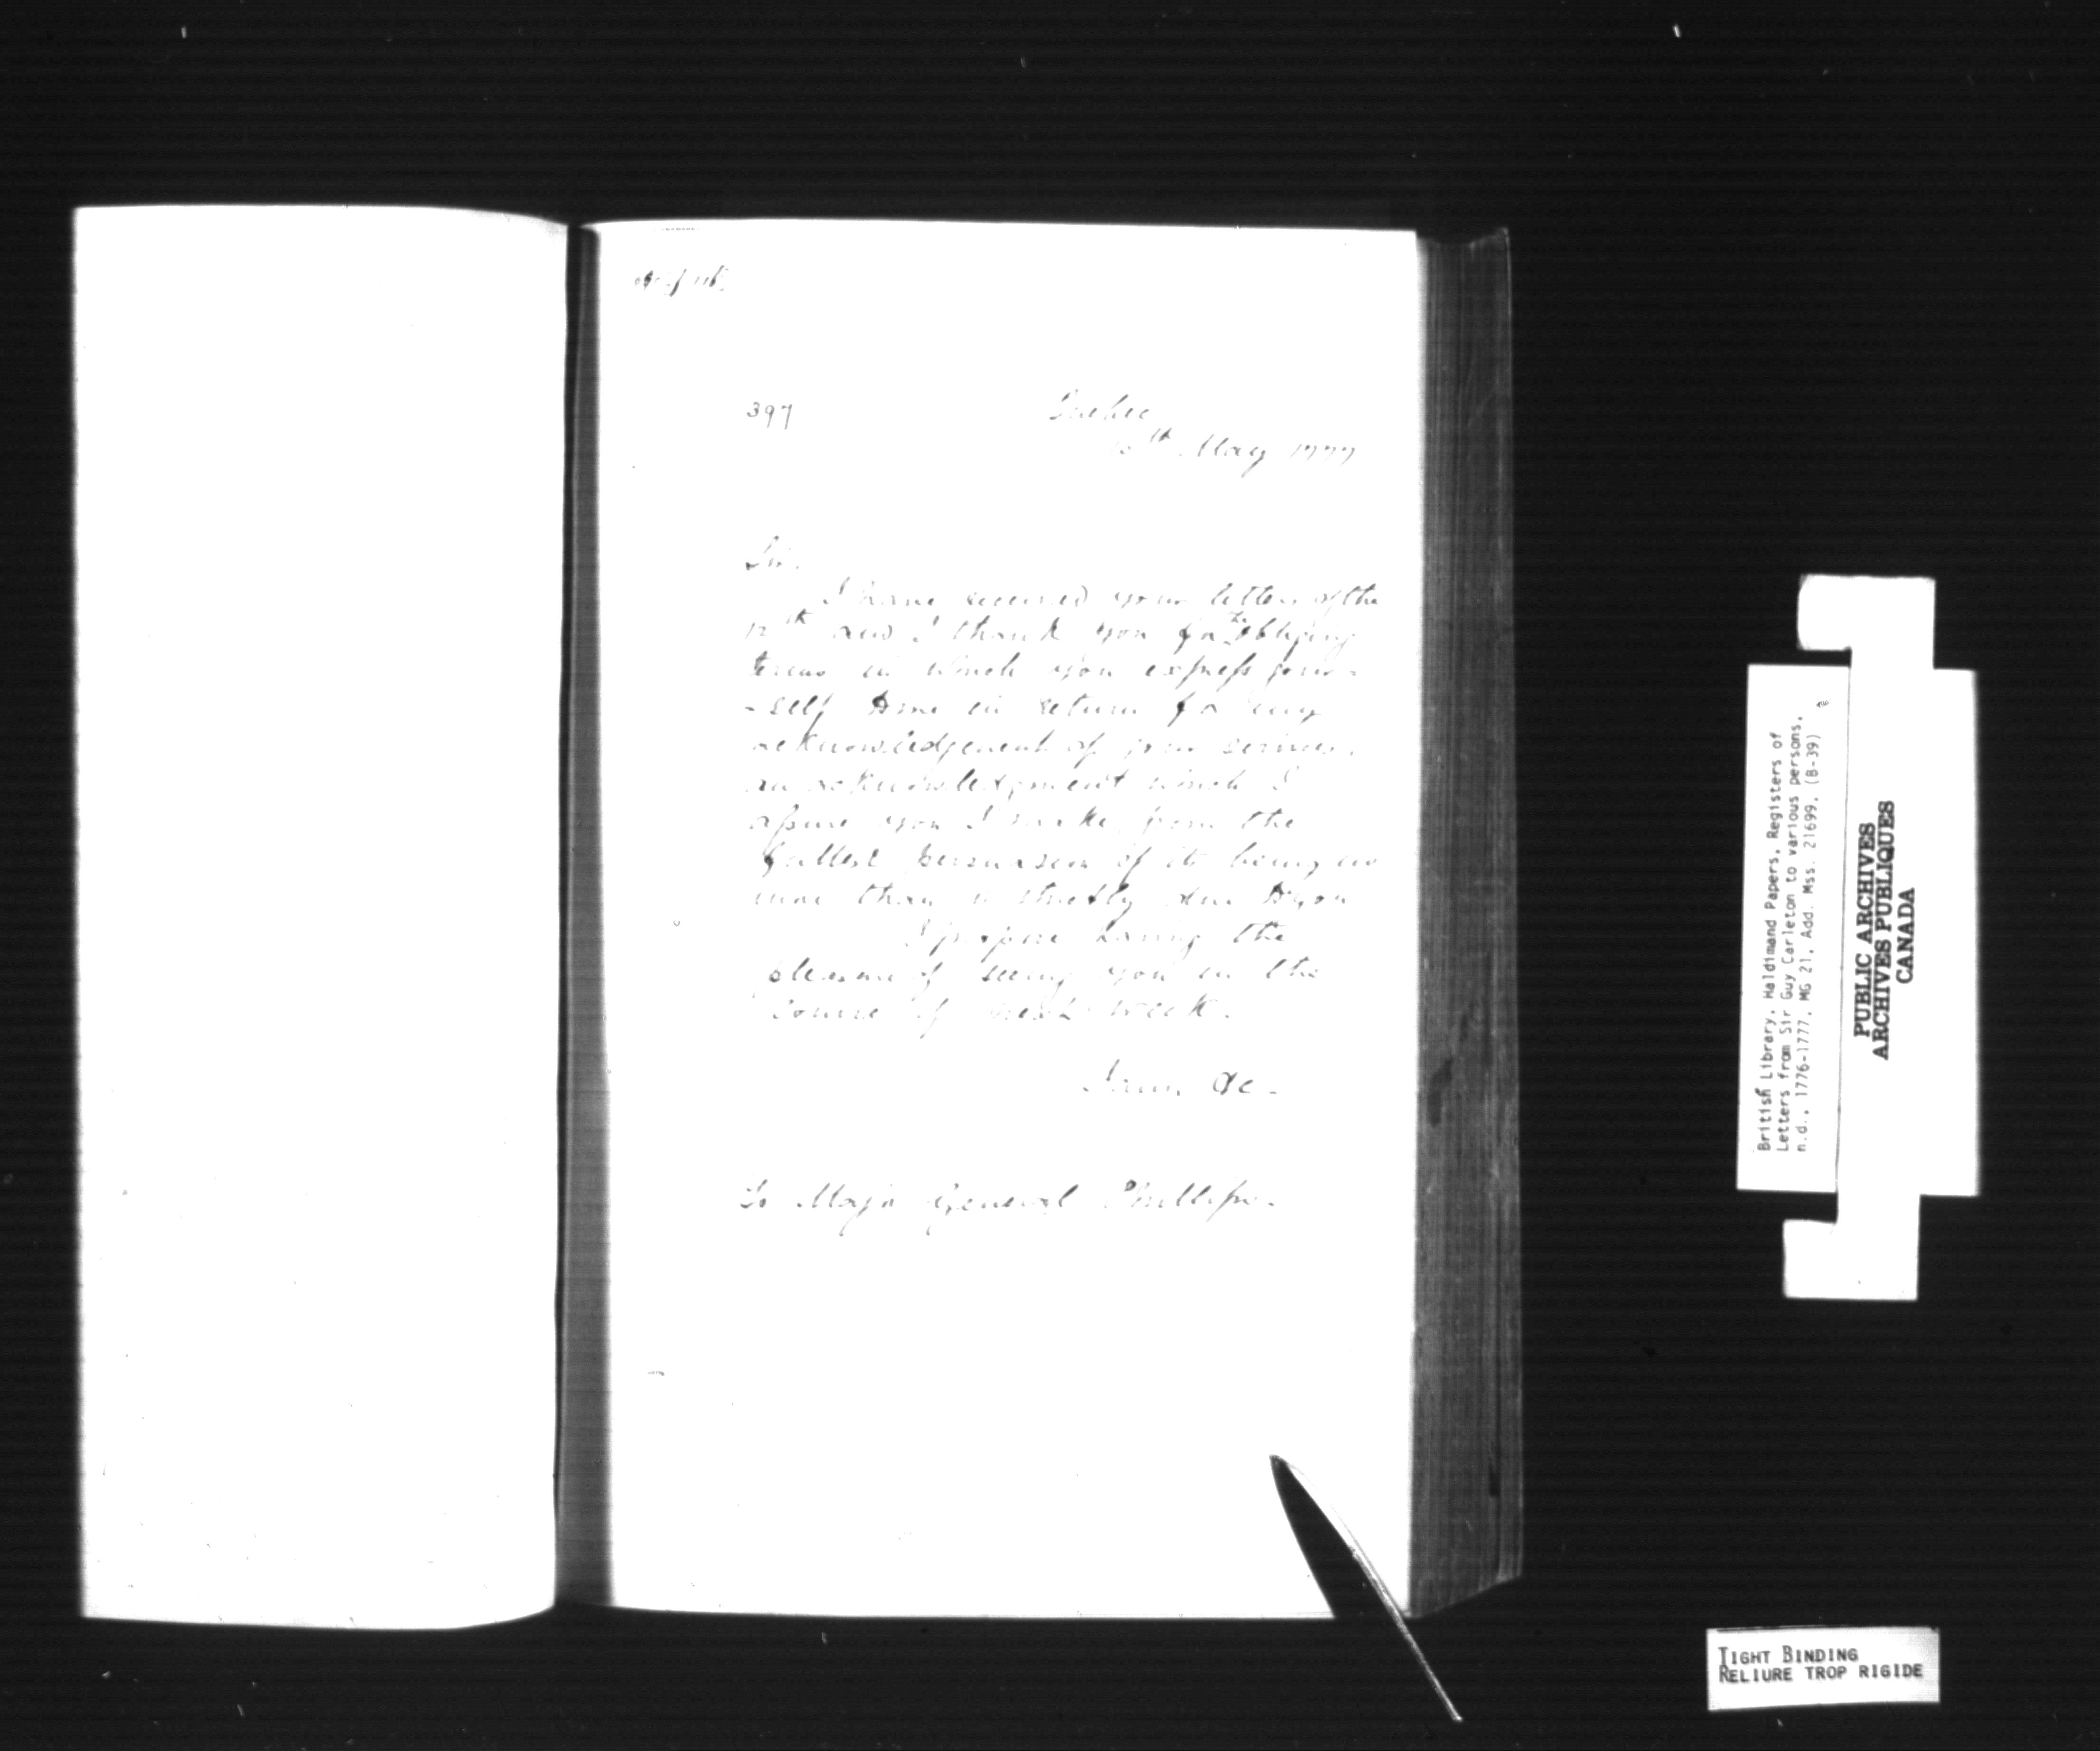 397
Quebec
th May 1777
Sir.
I have received your letter of the
12th and I thank you for the obliging
terms in which you express your-
-self to me in return for my
acknowledgement of your services,
an acknowledgment which I
assure you I make, from the
fullest persuasion of its being no
more than is strictly due to you
I propose having the
pleasure of seeing you in the
course of next week.
I am, &c.
To Major General Phillips.
British Library, Haldimand Papers, Registers of
Letters from Sir Guy Carleton to various persons,
n.d., 1776-1777, MG 21, Add. Mss. 21699, (B-39)
PUBLIC ARCHIVES
ARCHIVES PUBLIQUES
CANADA
TIGHT BINDING
RELIURE TROP RIGIDE